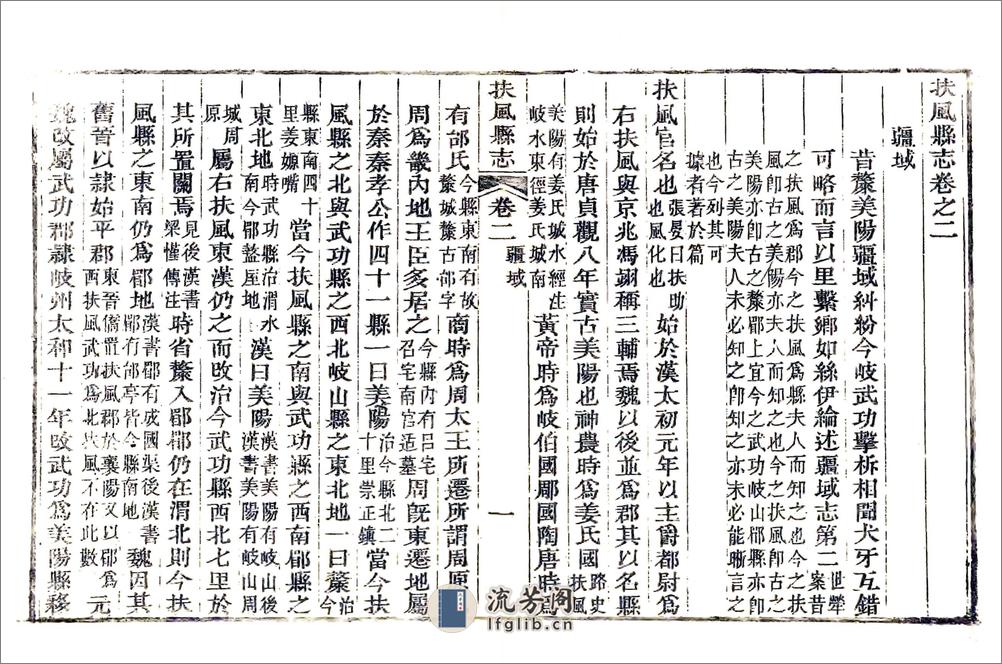 扶風縣志卷之二
疆域
昔斄美陽疆域糾紛今岐武功擊柝相聞犬牙互錯
可略而言以里繫鄉如絲伊綸述疆域志第二世犖案昔
之扶風為郡今之扶風為縣夫人而知之也今之扶
風卽古之美陽亦夫人而知之也今之扶風卽古之
美陽亦卽古之斄郿上宜今之武功岐山郿縣亦卽
古之美陽夫人未必知之卽知之亦未必能晰言之
也今列其可
據者著於篇
扶風官名也張晏曰扶助也風化也始於漢太初元年以主爵都尉為
右扶風與京兆馮翊稱三輔焉魏以後並為郡其以名縣
則始於唐貞觀八年實古美陽也神農時為姜氏國路史扶風
美陽有姜氏城水經注岐水東徑姜氏城南黃帝時為岐伯國郿國陶唐時為
扶風縣志 卷二 疆域 一
有邰氏今縣東南有故斄城斄古邰字商時為周太王所遷所謂周原
周為畿內地王臣多居之今縣內有呂宅召宅南宫适墓周旣東遷地屬
於秦秦孝公作四十一縣一曰美陽治今縣北二十里崇正鎮當今扶
風縣之北與武功縣之西北岐山縣之東北地一曰斄治今
縣東南四十里姜嫄嘴當今扶風縣之南與武功縣之西南郿縣之
東北地時武功縣治渭水南今郿盩厔地漢曰美陽漢書美陽有岐山後漢書美陽有岐山周
城周原屬右扶風東漢仍之而改治今武功縣西北七里於
其所置關焉見後漢書梁慬傳注時省斄入郿郿仍在渭北則今扶
風縣之東南仍為郿地漢書郿有成國渠後漢書郿有邰亭皆今縣南地魏因其
舊晉以隸始平郡東晉僑置扶風郡於襄陽又以郿為西扶風武功為北扶風不在此數元
魏改屬武功郡隸岐州太和十一年改武功為美陽縣移
流芳阁
lfglib.cn